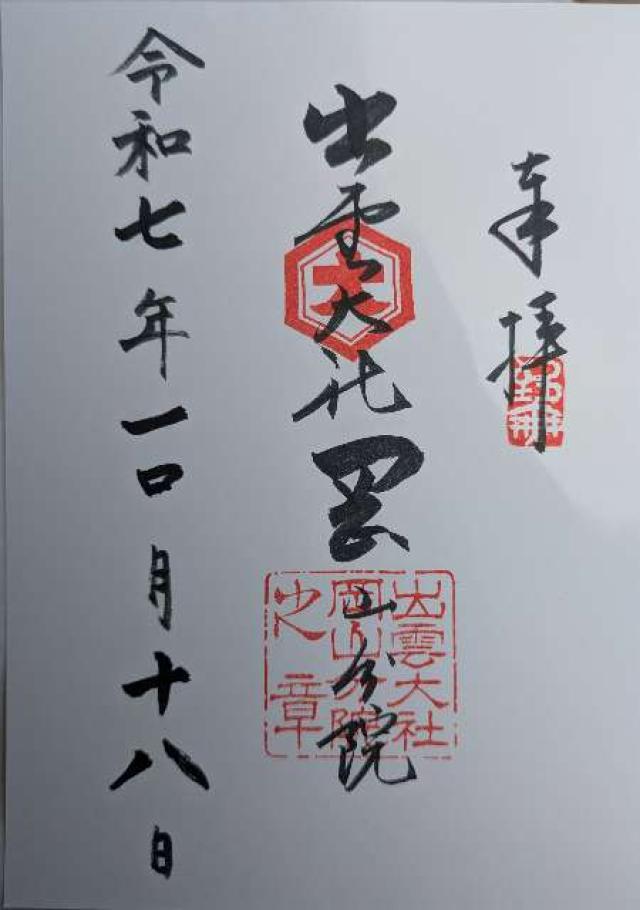 奉拝
出雲大社岡山分院
大
出雲大社
岡山分院
之章
令和七年一〇月十八日